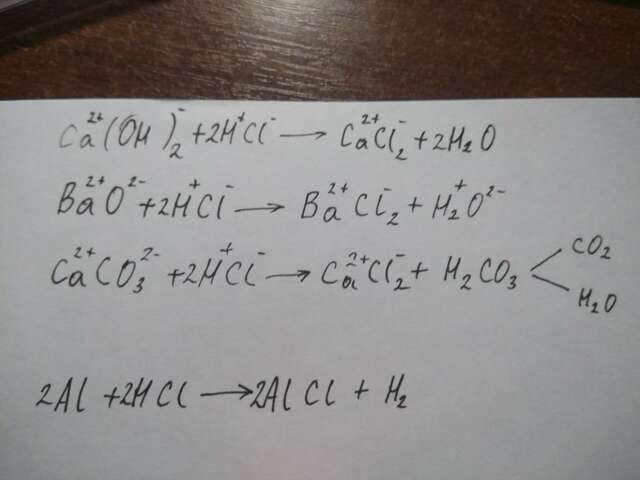 Ca²⁺(OH)₂⁻ + 2H⁺Cl⁻ → Ca²⁺Cl₂⁻ + 2H₂O
Ba²⁺O²⁻ + 2H⁺Cl⁻ → Ba²⁺Cl₂⁻ + H₂⁺O²⁻
Ca²⁺CO₃²⁻ + 2H⁺Cl⁻ → Ca²⁺Cl₂⁻ + H₂CO₃ < CO₂ H₂O
2Al + 2HCl → 2AlCl + H₂